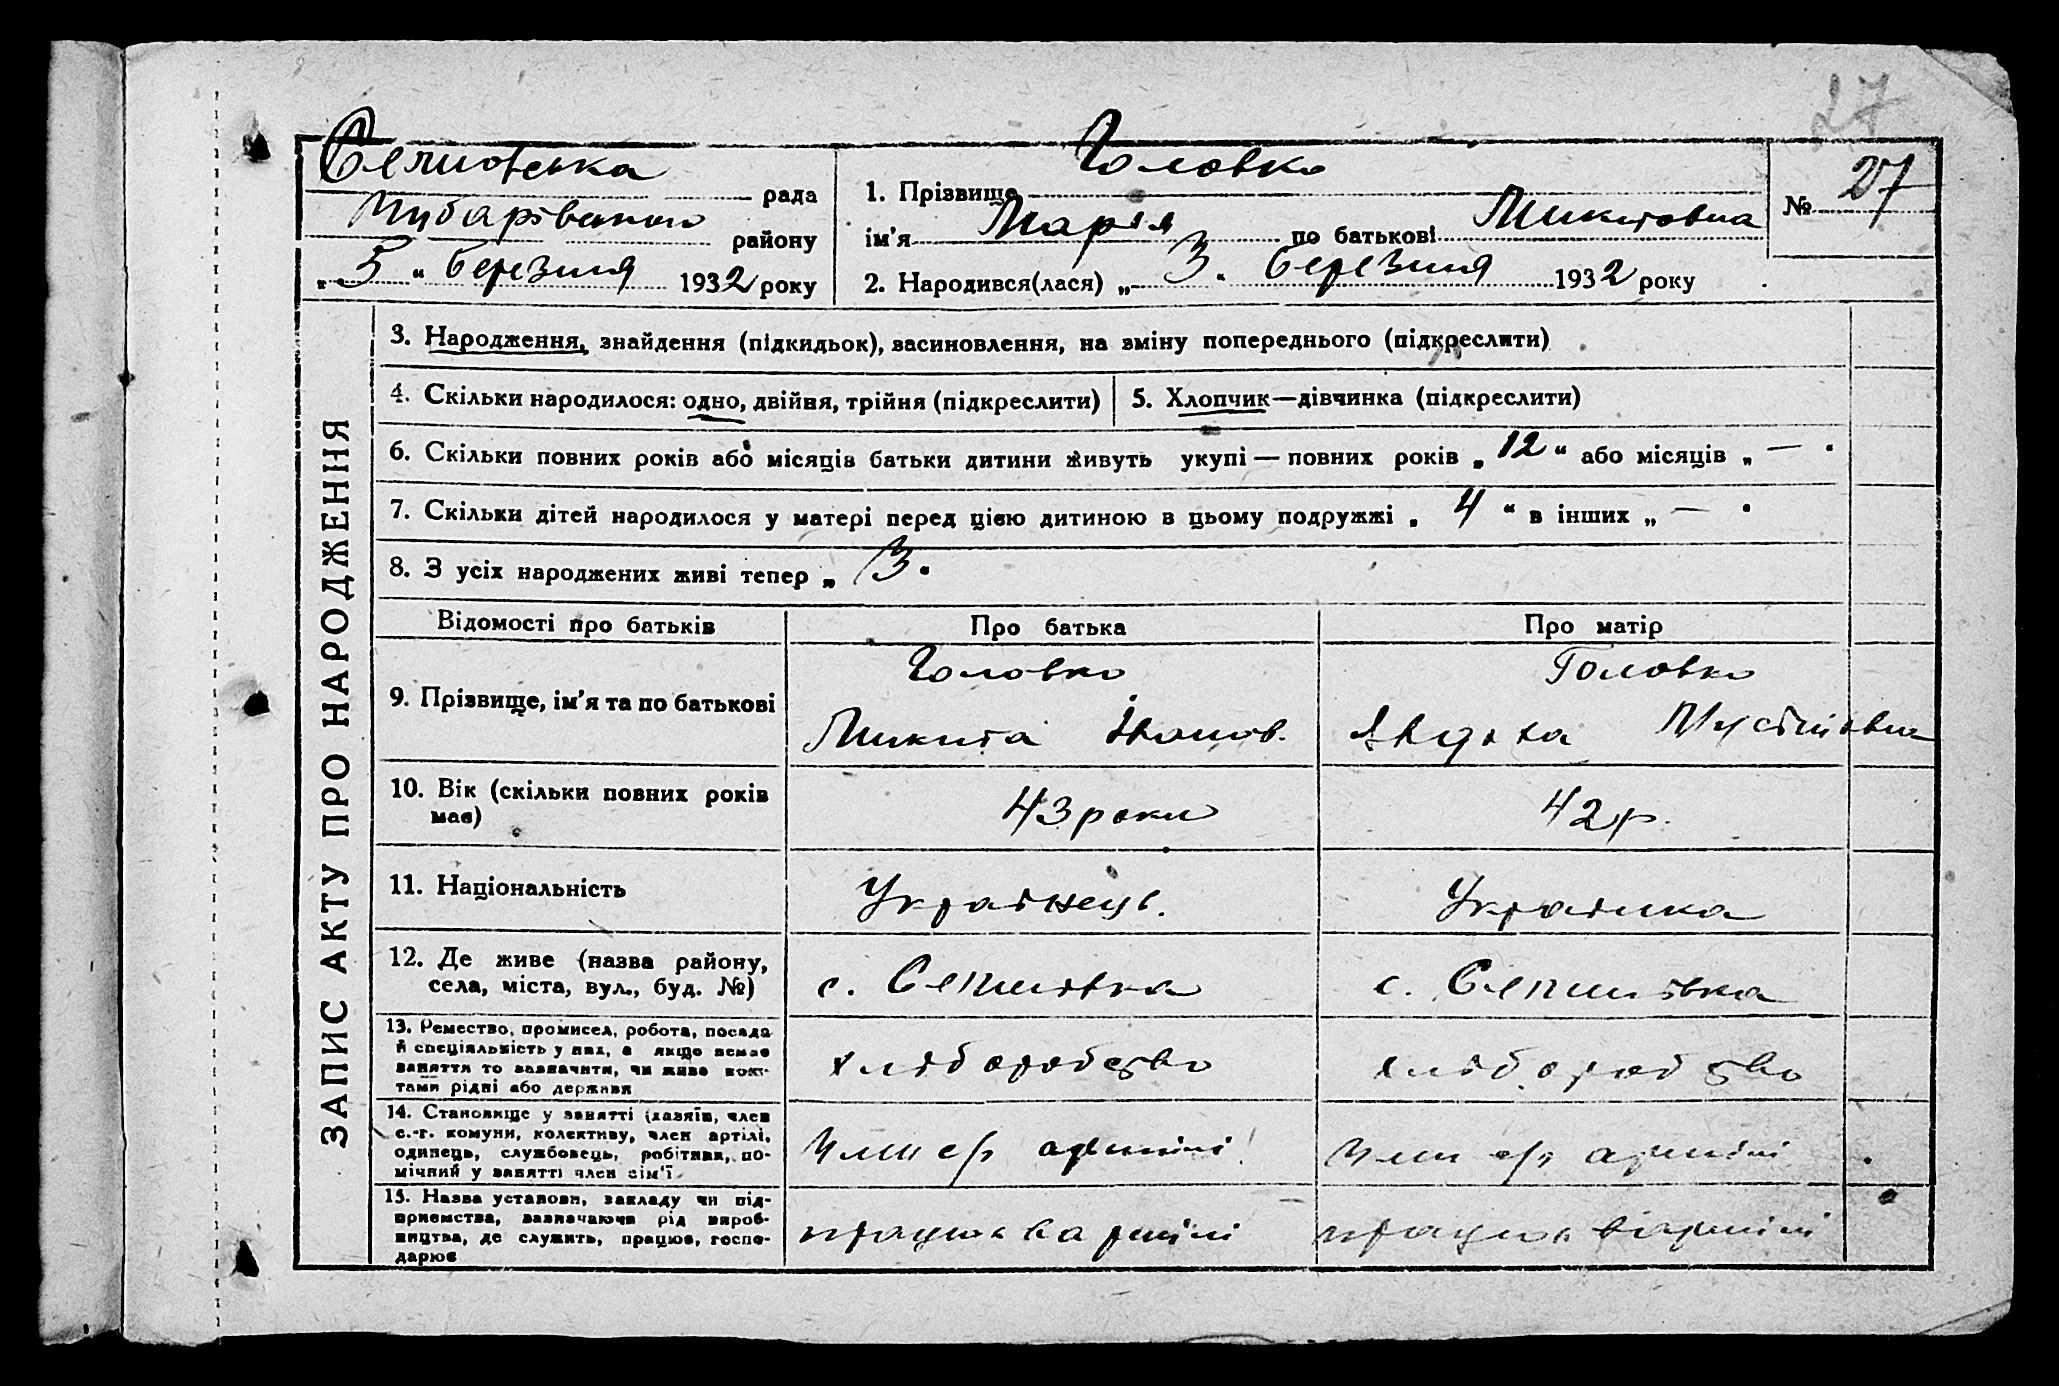 27
рада
району
„ 5 “ березня 1932 року
1. Прізвище Головко
ім'я Марія по батькові Микитовна
2. Народився(лася) „ 3 „ березня 1932 року
№ 27
ЗАПИС АКТУ ПРО НАРОДЖЕННЯ
3. Народження, знайдення (підкидьок), засиновлення, на зміну попереднього (підкреслити)
4. Скільки народилося: одно, двійня, трійня (підкреслити)
5. Хлопчик—дівчинка (підкреслити)
6. Скільки повних років або місяців батьки дитини живуть укупі — повних років „ 12 “ або місяців „ — “
7. Скільки дітей народилося у матері перед цією дитиною в цьому подружжі „ 4 “ в інших „ — “
8. З усіх народжених живі тепер „ 3 “
Відомості про батьків
Про батька
Про матір
9. Прізвище, ім'я та по батькові
Головко
Микита Іванов.
Головко
Явдоха
10. Вік (скільки повних років
має)
43 роки
42 р.
11. Національність
Українець.
Українка
12. Де живе (назва району,
села, міста, вул., буд. №)
с.
с.
13. Ремество, промисел, робота, посада
й спеціяльність у них, а якщо немає
заняття то зазначити, чи живе кош-
тами рідні або держави
хліборобство
хліборобство
14. Становище у занятті (хазяїн, член
с.-г. комуни, колективу, член артілі,
одинець, службовець, робітник, по-
мічний у занятті член сім'ї
член с/г артілі
член с/г артілі
15. Назва установи, закладу чи під-
приємства, зазначаючи рід вироб-
ництва, де служить, працює, госпо-
дарює
працює в артілі
працює в артілі